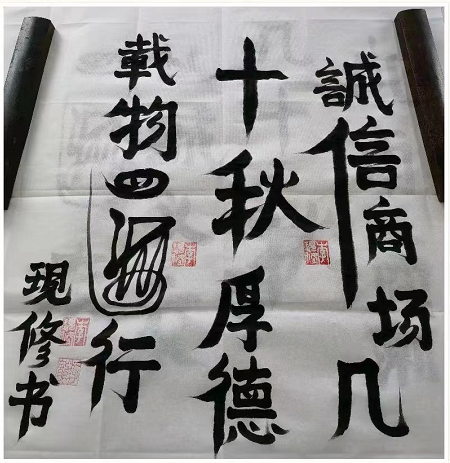 誠信商场几
十秋厚德
載物四海行
現修书